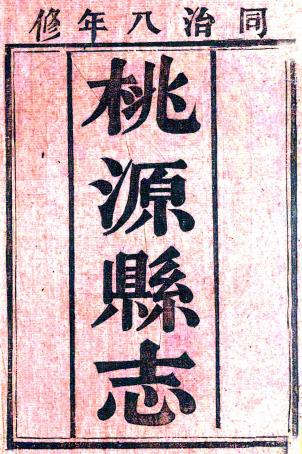 同治八年修
桃源縣志